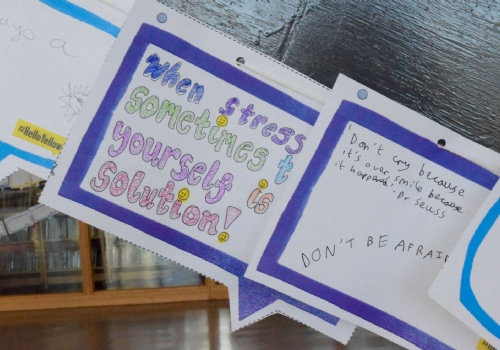 ays a
#HelloYellow
When stress
sometimes t
yourself is
solution!
"Don't cry because
it's over, smile because
it happened." Dr Seuss
DON'T BE AFRAI